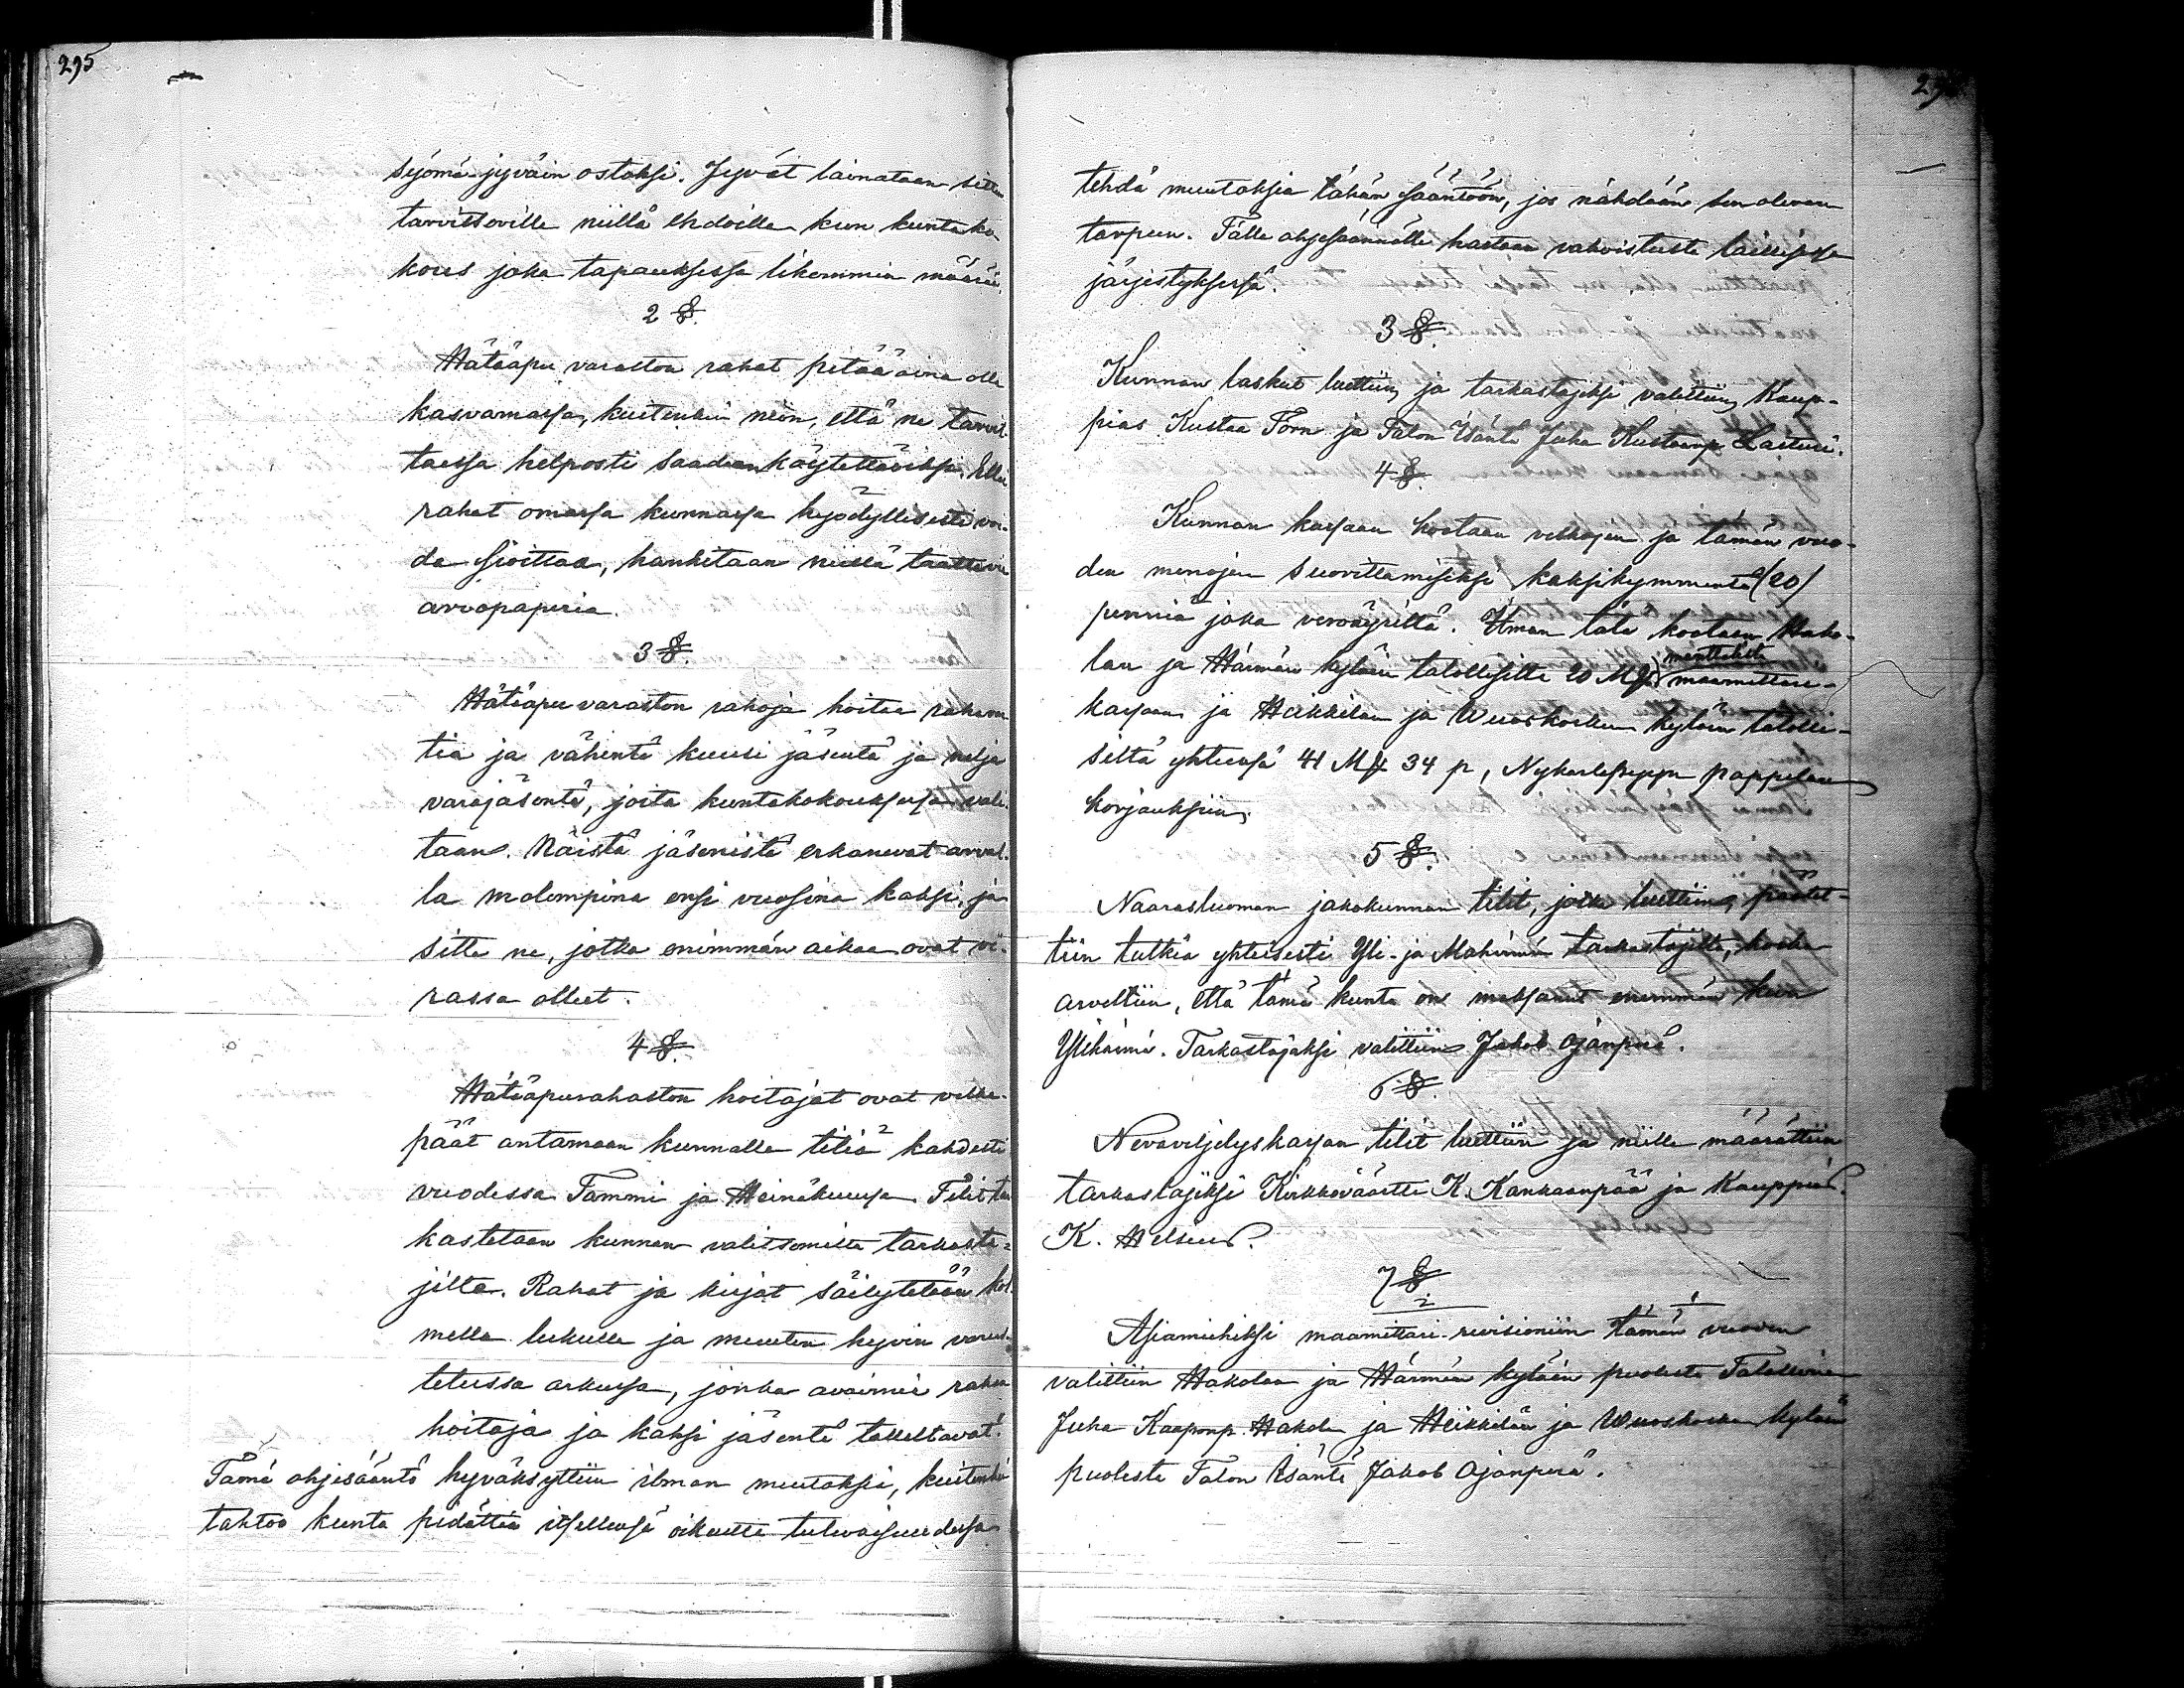 295
syömä jyväin ostoksi. Jyvät lainataan sitten
tarvitseville niillä ehdoilla kun kuntako-
kous joka tapauksessa likemmin määrää.
2 §.
Hätäapu varaston rahat pitää aina olla
kasvamassa, kuitenkin niin, että ne tarvit-
taessa helposti saadaan käytettäviksi. Ellei
rahat omassa kunnassa hyödyllisesti voi-
da sijoittaa, hankitaan niillä taattavia
arvopaperia.
3 §.
Hätäapu varaston rahoja hoitaa
tia ja vähintä kuusi jäsentä ja neljä
varajäsentä, joita kuntakokouksessa vali-
taan. Näistä jäsenistä erkanevat arval-
la molempina ensi vuosina kaksi, ja
sitte ne, jotka enimmän aikaa ovat vi-
rassa olleet.
4 §.
Hätäapurahaston hoitajat ovat velka-
päät antamaan kunnalle tiliä kahdesti
vuodessa Tammi ja Heinäkuussa. Tilit tar-
kastetaan kunnan valitsemilta tarkasta-
jilta. Rahat ja kirjat säilytetään kol-
mella lukulla ja muuten hyvin varus-
tetussa arkussa, jonka avaimia rahan
hoitaja ja kaksi jäsentä tallettavat.
Tämä ohjesääntö hyväksyttiin ilman muutoksia, kuitenkin
tahtoo kunta pidättää itsellensä oikeutta tulevaisuudessa
tehdä muutoksia tähän sääntöön, jos nähdään sen olevan
tarpeen. Tälle ohjesäännölle haetaan vahvistusta laillisessa
järjestyksessä.
3 §.
Kunnan laskut luettiin, ja tarkastajiksi valittiin, Kaup-
pias Kustaa Forn ja Talon Isäntä Juha Kustaanp. Lasturi.
4 §.
Kunnan kassaan kootaan velkojen ja tämän vuo-
den menojen suorittamiseksi kaksikymmentä (20)
penniä joka veroäyriltä. Ilman tätä kootaan Hako-
lan ja Härmän kyläin talollisilta 20 Mk manttalilta maamittari-
kassaan ja Heikkilän ja Wuoskosken kyläin talolli-
silta yhteensä 41 Mk 34 p, Nykarlepyyn pappilan
korjauksiin.
5 §.
Naarasluoman jakokunnan tilit, jotka luettiin, päätet-
tiin tutkia yhteisesti Yli- ja Alahärmän tarkastajilta, koska
arveltiin, että tämä kunta on maksanut enemmän kun
Ylihärmä. Tarkastajaksi valittiin Jakob Ojanperä.
6 §.
Nevaviljelyskassan tilit luettiin ja niille määrättiin
tarkastajiksi Kirkkoväärtti K. Kankaanpää ja Kauppias
K. Helsius.
7 §
2 1
Asiamiehiksi maamittari-revisioniin tämän vuoden
valittiin Hakolan ja Härmän kyläin puolesta Talollinen
Juha Kaaponp. Hakola ja Heikkilän ja Wuoskosken kyläin
puolesta Talon Isäntä Jakob Ojanperä.